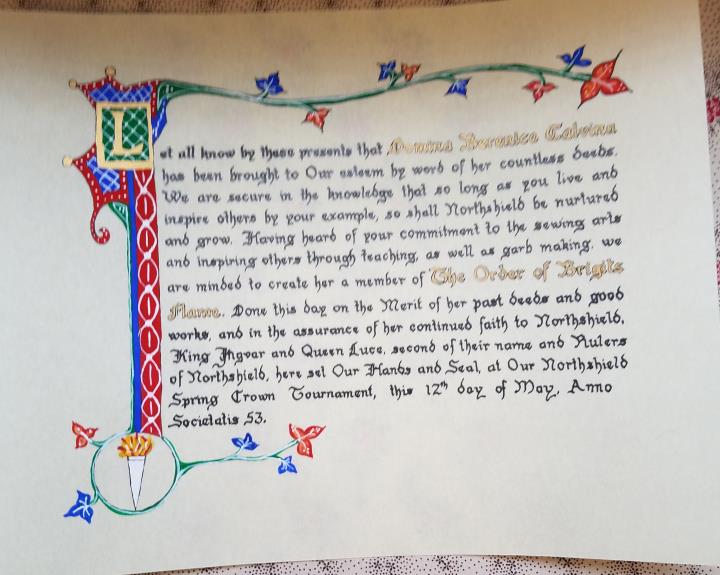 Let all know by these presents that Domina Berenice Calvina
has been brought to Our esteem by word of her countless deeds.
We are secure in the knowledge that so long as you live and
inspire others by your example, so shall Northshield be nurtured
and grow. Having heard of your commitment to the sewing arts
and inspiring others through teaching, as well as garb making, we
are minded to create her a member of The Order of Brigits
Flame. Done this day on the Merit of her past deeds and good
works, and in the assurance of her continued faith to Northshield,
King Yngvar and Queen Luce, second of their name and Rulers
of Northshield, here set Our Hands and Seal, at Our Northshield
Spring Crown Tournament, this 12th day of May, Anno
Societatis 53.